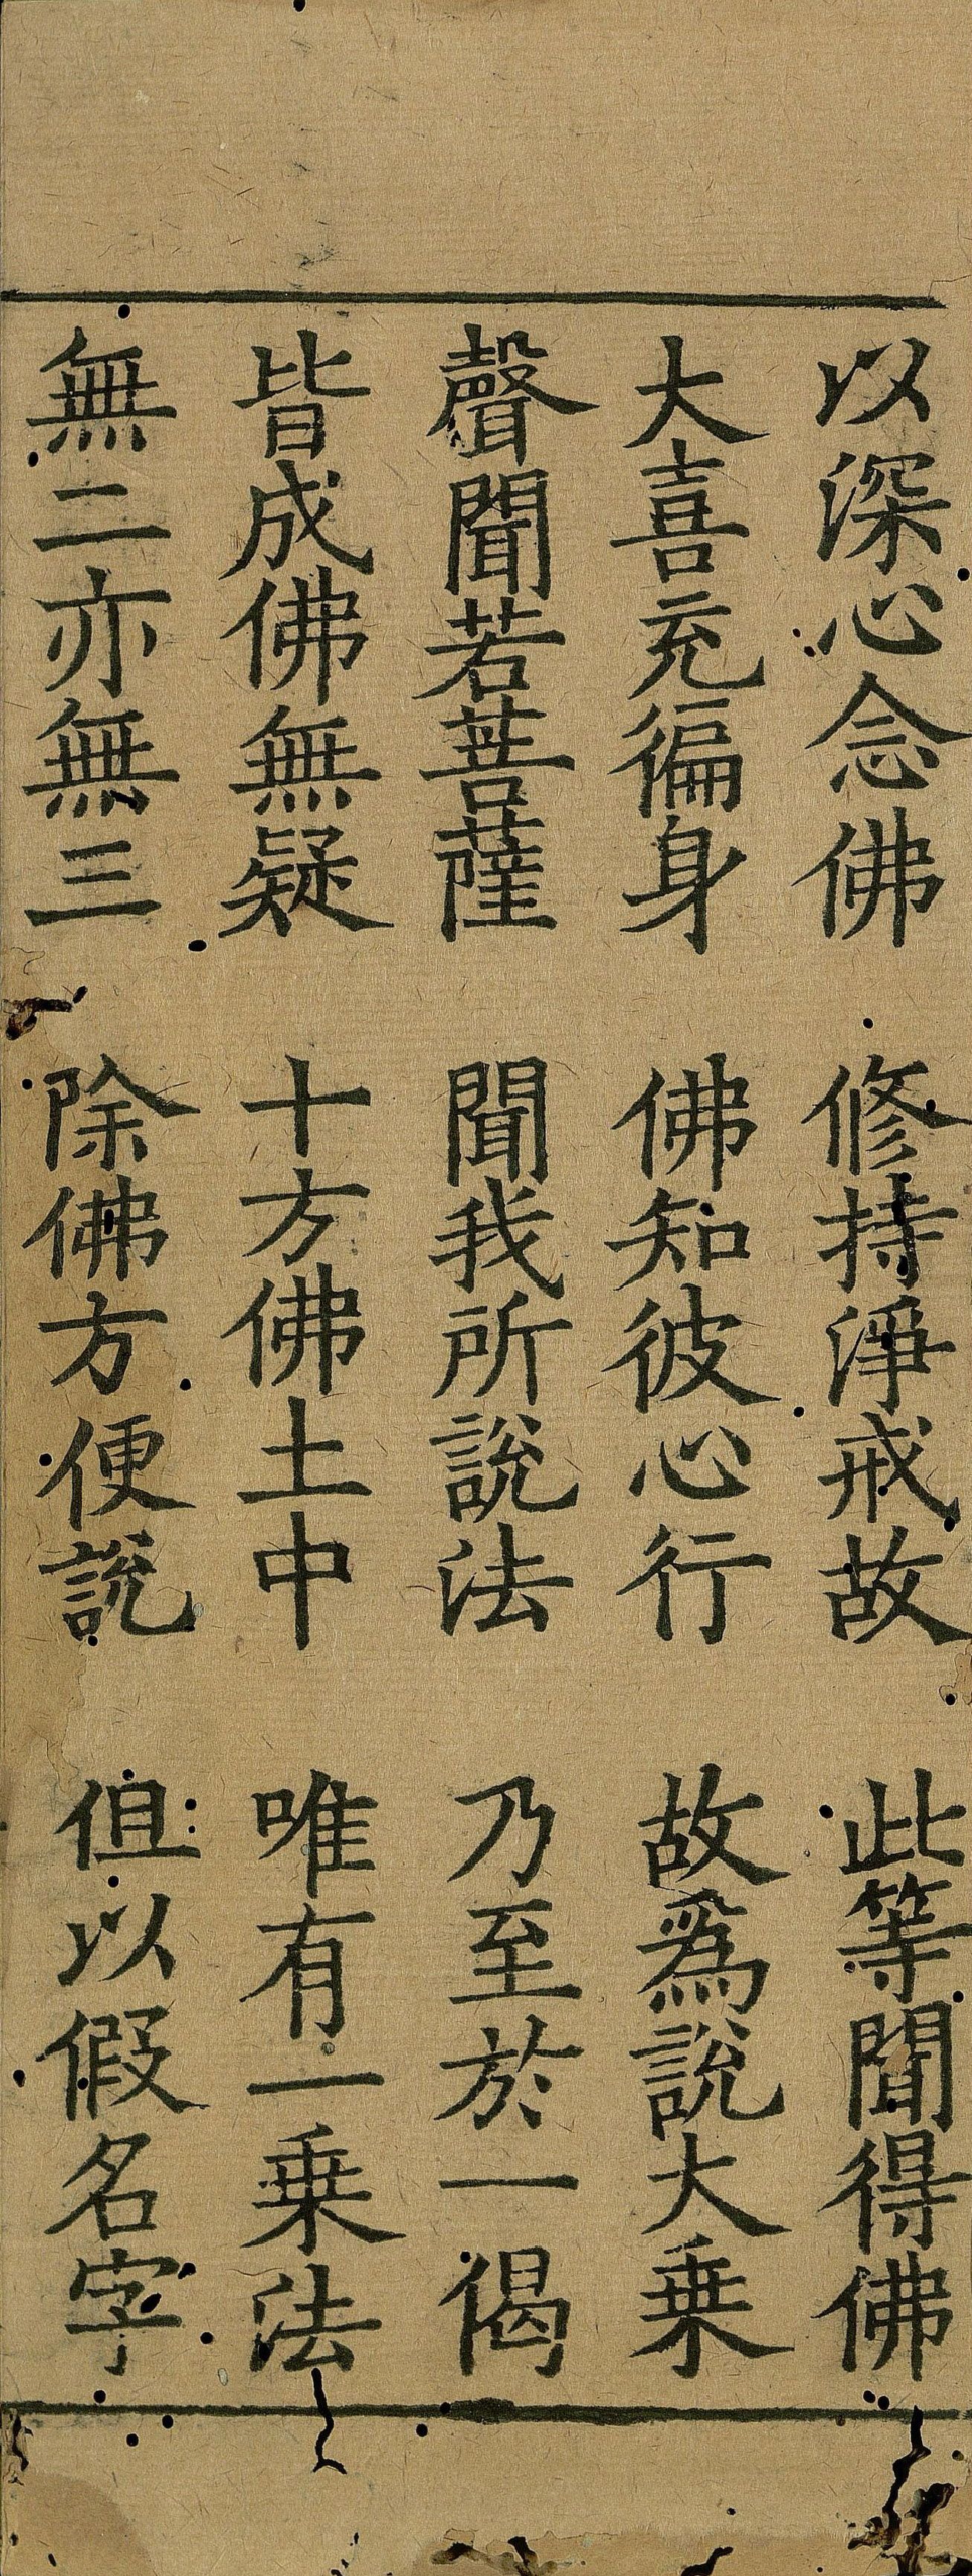 以深心念佛　修持淨戒故　此等聞得佛
大喜充徧身　佛知彼心行　故爲說大乗
聲聞若菩薩　聞我所說法　乃至於一偈
皆成佛無疑　十方佛土中　唯有一乗法
無二亦無三　除佛方便說　但以假名字